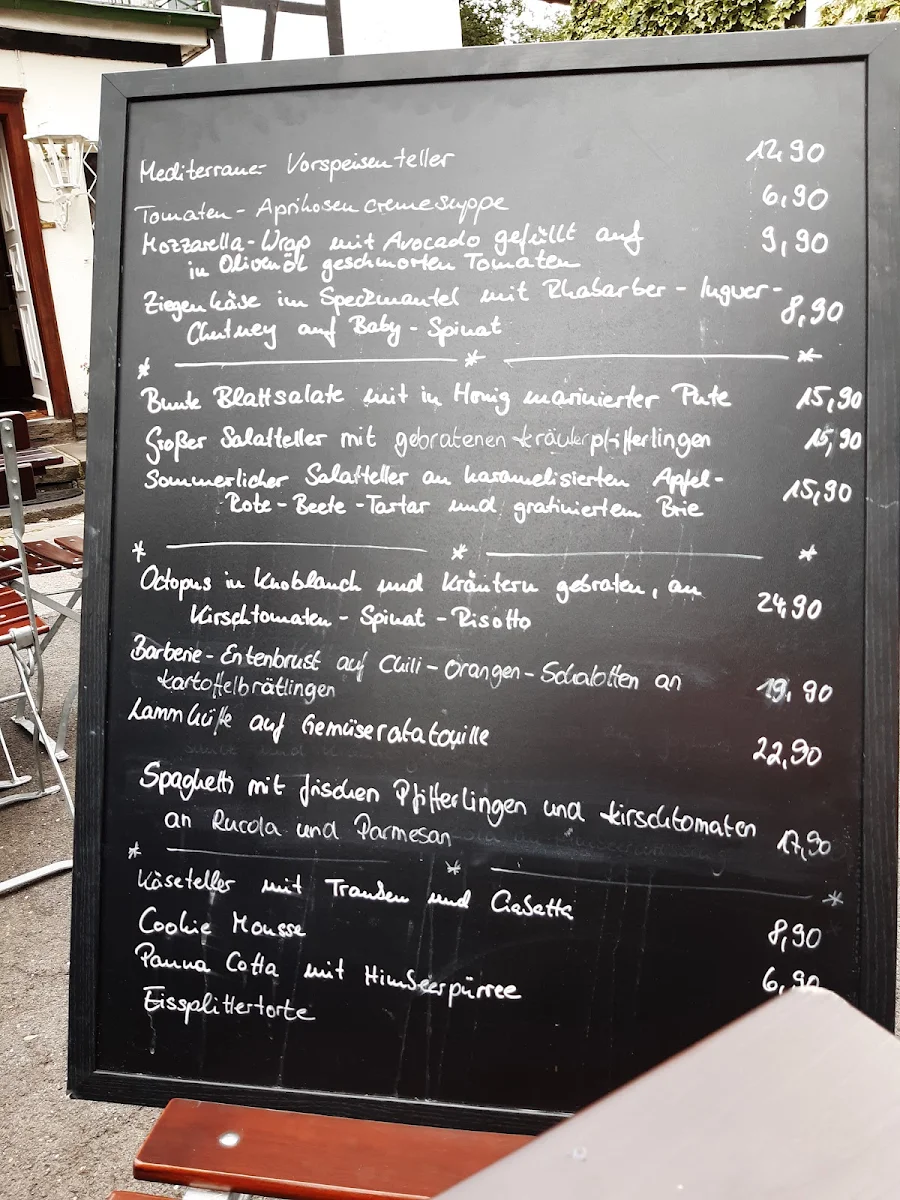 Mediterraner Vorspeisenteller 12,90
Tomaten - Aprikosencremesuppe 6,90
Mozzarella-Wrap mit Avocado gefüllt auf 9,90
in Olivenöl geschmorten Tomaten
Ziegenkäse im Speckmantel mit Rhabarber - Ingwer- 8,90
Chutney auf Baby - Spinat
Bunte Blattsalate mit in Honig marinierter Pute 15,90
Großer Salatteller mit gebratenen Kräuterpfifferlingen 15,90
Sommerlicher Salatteller an karamelisierten Apfel- 15,90
Rote - Beete - Tartar und gratiniertem Brie
Octopus in Knoblauch und Kräutern gebraten, an 24,90
Kirschtomaten - Spinat - Risotto
Barberie - Entenbrust auf Chili - Orangen - Schalotten an 19,90
Kartoffelbrätlingen
Lammhüfte auf Gemüseratatouille 22,90
Spaghetti mit frischen Pfifferlingen und Kirschtomaten
an Rucola und Parmesan 17,90
Käseteller mit Trauben und Ciabatta 8,90
Cookie Mousse 6,90
Panna Cotta mit Himbeerpürree
Eissplittertorte